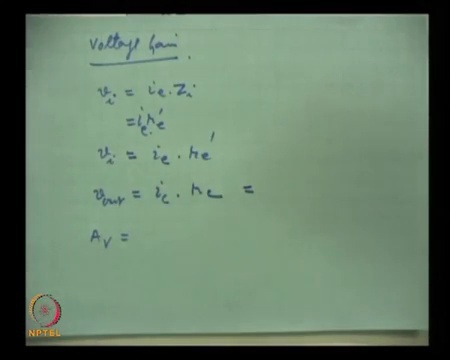 Voltage Gain
v_i = i_e . Z_i
= i_e r_e'
v_i = i_e . r_e'
v_out = i_c . r_c =
A_V =
NPTEL